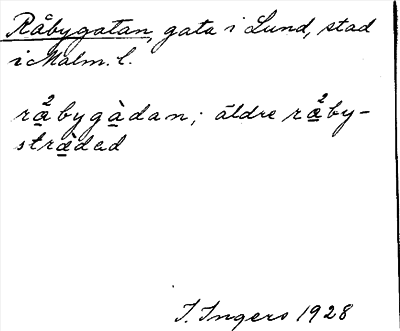 Råbygatan, gata i Lund, stad
i Malm. l.
rå̲²bygà̲dan; äldre rå̲²by-
strà̲dəd
I. Ingers 1928